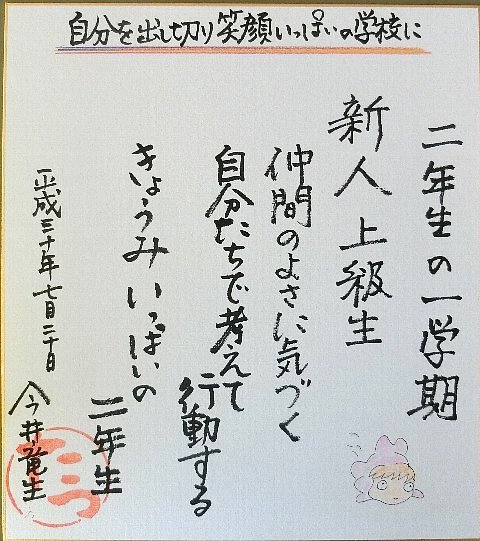 自分を出し切り笑顔いっぱいの学校に
二年生の一学期
新人上級生
仲間のよさに気づく
自分たちで考えて
行動する
きょうみいっぱいの
二年生
平成三十年七月二十日
今井竜生